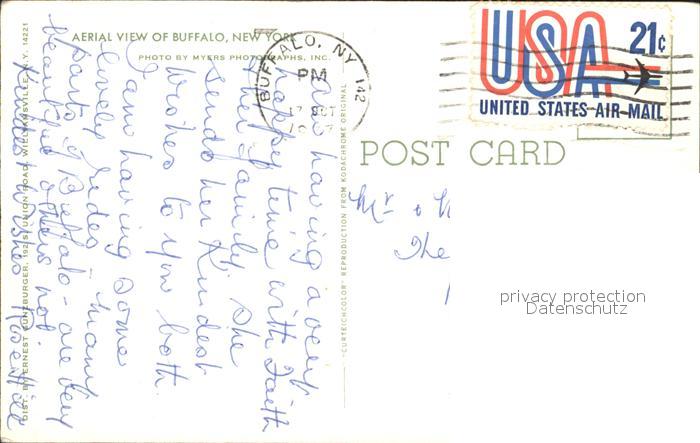 AERIAL VIEW OF BUFFALO, NEW YORK
PHOTO BY MYERS PHOTOGRAPHS, INC.
DIST. BY ERNEST GUNZBURGER, 192 S. UNION ROAD, WILLIAMSVILLE, N.Y. 14221
am having a very
happy time with Faith
& her family. She
sends her kindest
wishes to you both.
I am having some
lovely rides – many
parts of Buffalo – are very
beautiful others not.
Kindest wishes
"CURTEICHCOLOR" REPRODUCTION FROM KODACHROME ORIGINAL
BUFFALO, NY 142
PM
OCT
USA 21¢
UNITED STATES AIR MAIL
POST CARD
Mr &
The
privacy protection
Datenschutz